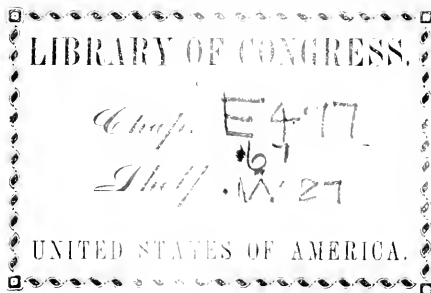 LIBRARY OF CONGRESS.
Chap. E477
.67
Shelf .M27
UNITED STATES OF AMERICA.